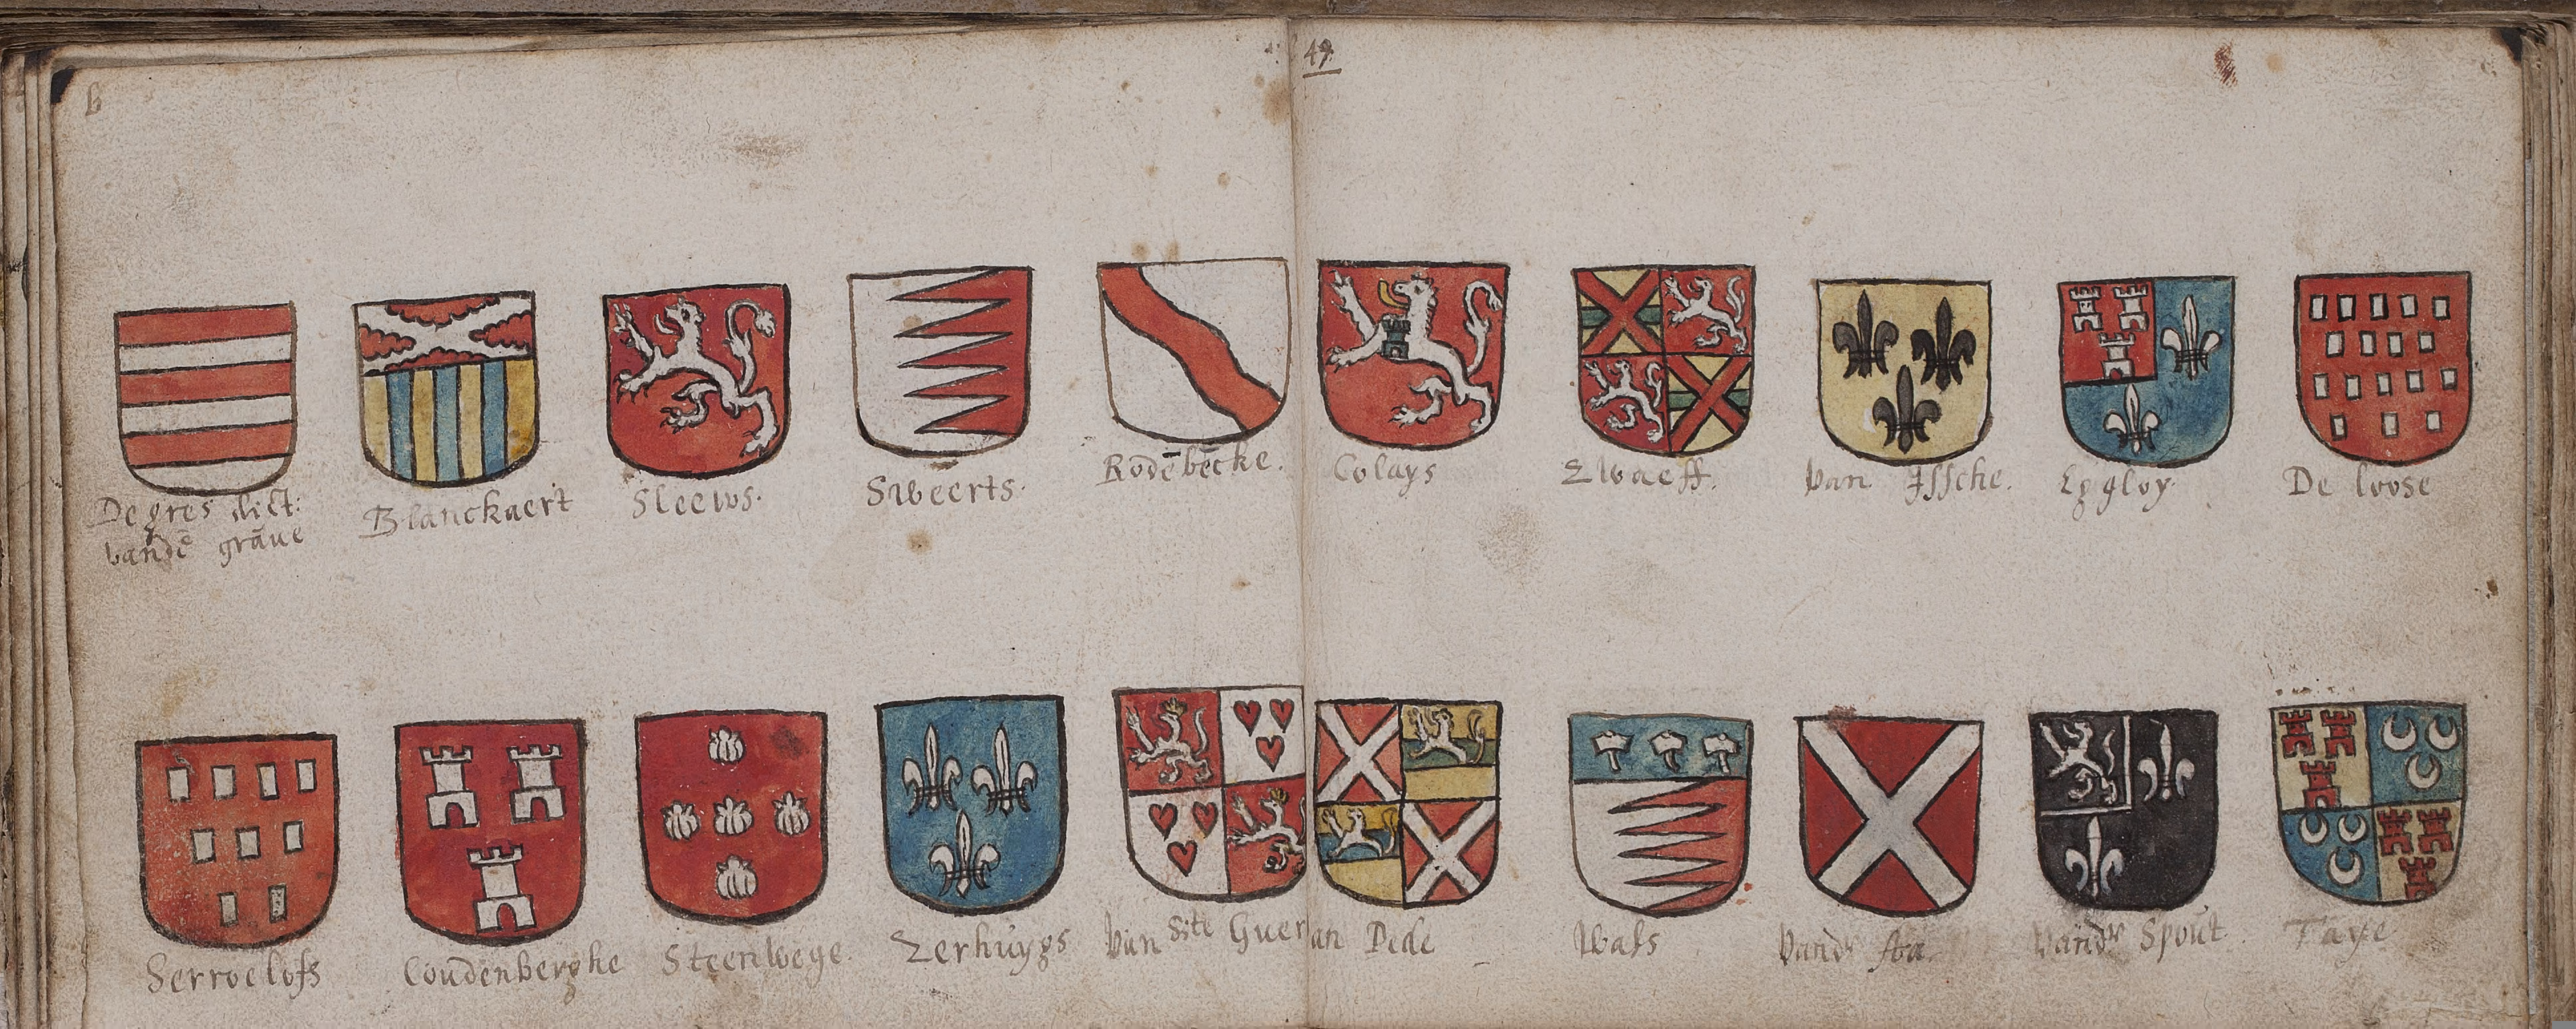 49
Degres dict:
vandē grāue
Blanckaert
Sleews.
Sweerts.
Rodēbēcke.
Colays
Zwaeff.
Van Issche.
Eggloy.
De loose
Serroelofs
Coudenberghe
Steenwege.
Zerhuygs
Van
an Pede
Wals
Vandr
Vandr Spout
Taye